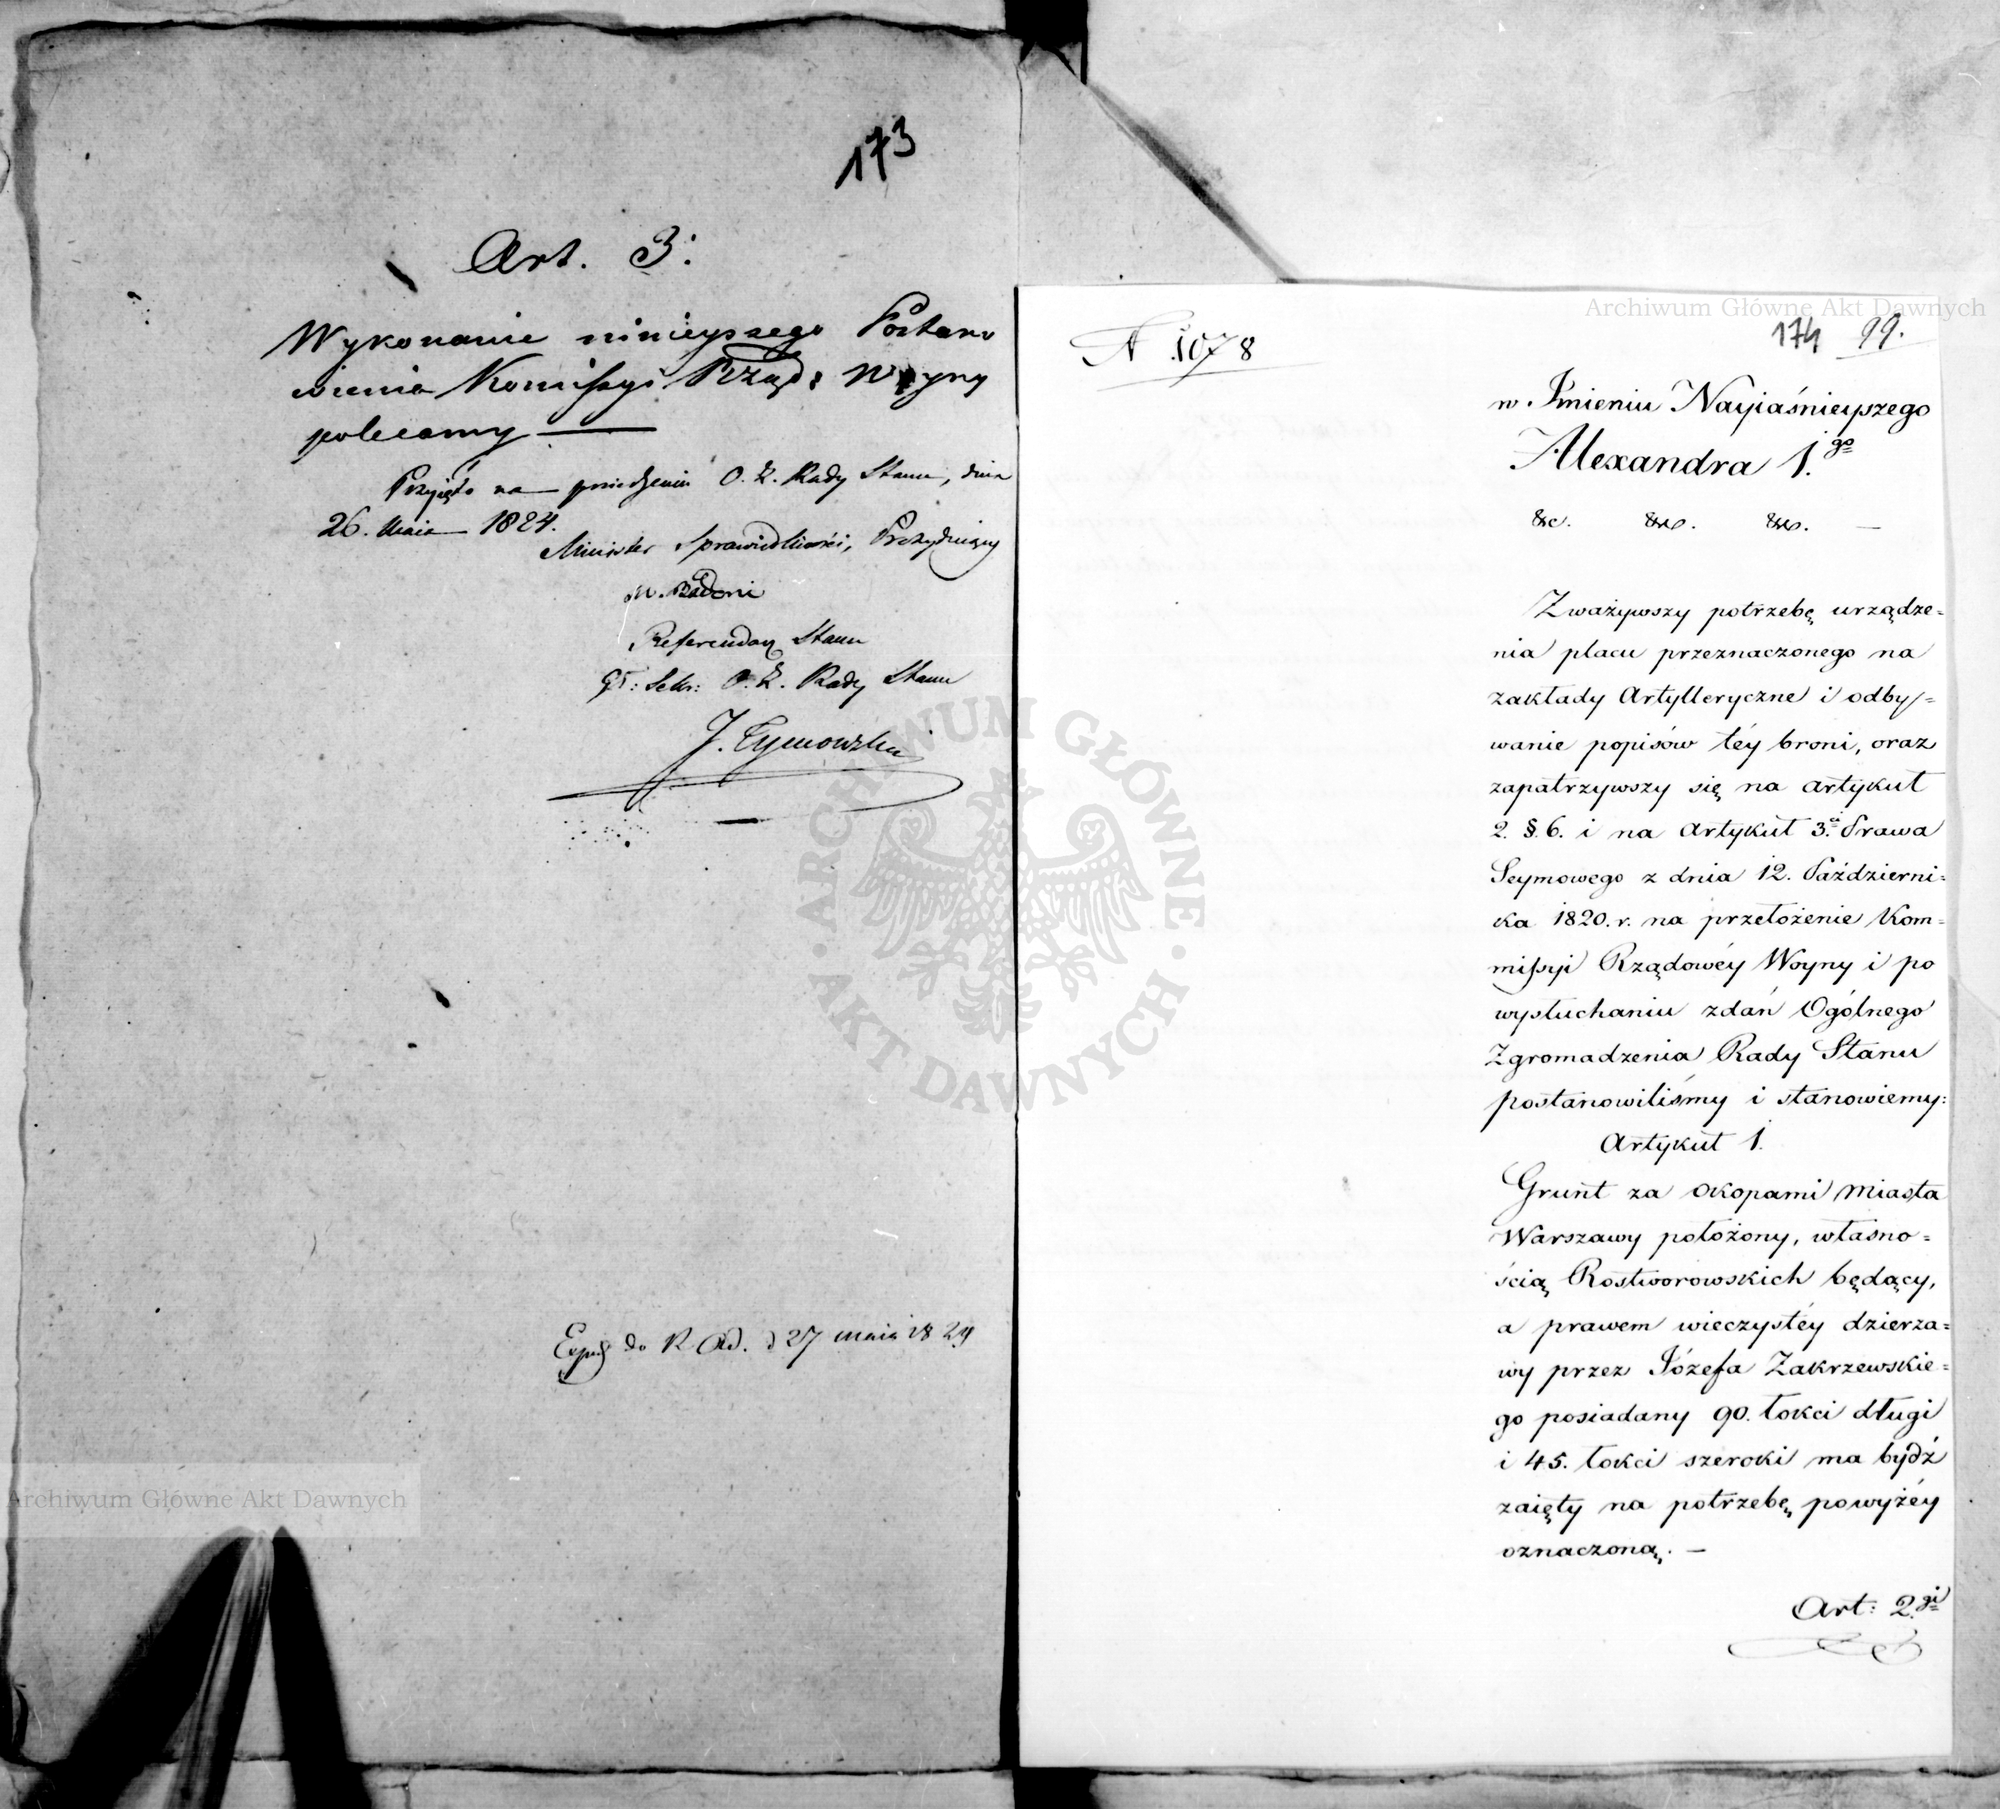 173
Art. 3:
Wykonanie ninieyszego Postano
wienia Kommissyi Rząd: Woyny
polecamy —
Przyięto na posiedzeniu O. Z. Rady Stanu, dnia
26. Maia 1824.
Minister Sprawiedliwości, Prezyduiący
M. Badeni
Referendarz Stanu
Sekr: O. Z. Rady Stanu
J. Tymowski
do R. Ad. d 27 maia 1824
Archiwum Główne Akt Dawnych
ARCHIWUM GŁÓWNE
· AKT DAWNYCH ·
Archiwum Główne Akt Dawnych
174 99.
N 1078
w Imieniu Nayiaśnieyszego
Alexandra 1.go
&c. &c. &c. —
Zważywszy potrzebę urządze=
nia placu przeznaczonego na
zakłady Artylleryczne i odby=
wanie popisów téy broni, oraz
zapatrzywszy się na artykuł
2. §. 6. i na artykuł 3.ci Prawa
Seymowego z dnia 12. Październi=
ka 1820. r. na przełożenie Kom=
missyi Rządowéy Woyny i po
wysłuchaniu zdań Ogólnego
Zgromadzenia Rady Stanu
postanowiliśmy i stanowiemy:
Artykuł 1.
Grunt za okopami miasta
Warszawy położony, własno=
ścią Rostworowskich będący,
a prawem wieczystéy dzierza=
wy przez Józefa Zakrzewskie=
go posiadany 90. łokci długi
i 45. łokci szeroki ma bydź
zaięty na potrzebę powyżéy
oznaczoną. —
Art: 2.gi